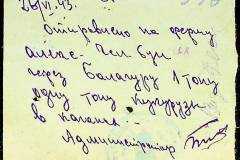 26/VI.43.
Отправлено на ферму
Алекс.
через Балагуру 1 тону
одну тону кукурузы
в качанах.
Администратор